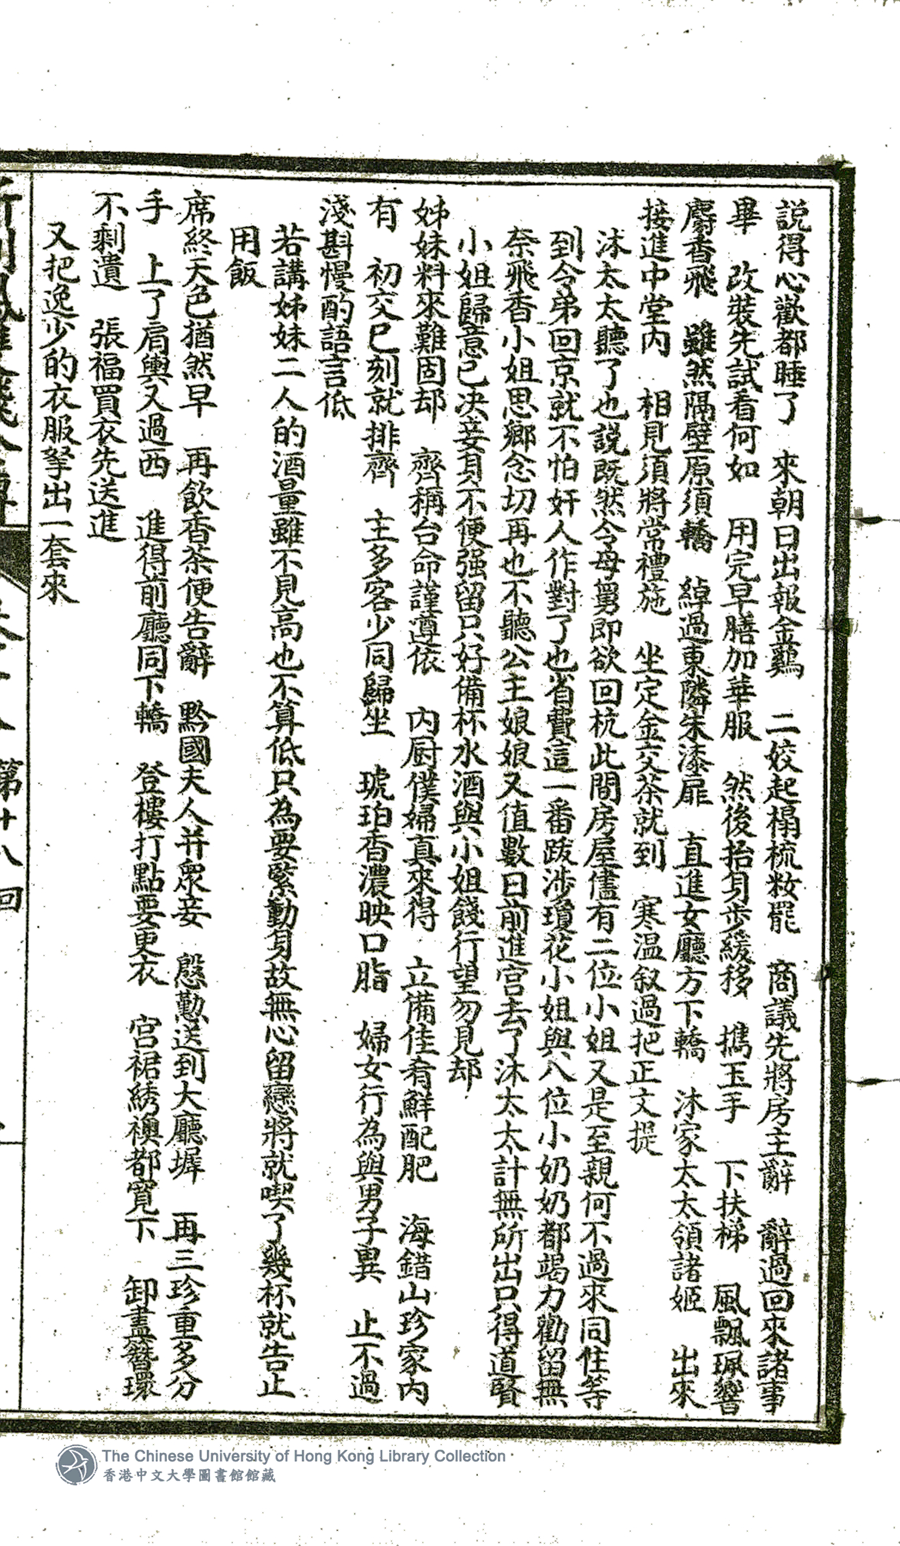 說得心歡都睡了　來朝日出報金鷄　二姣起榻梳妝罷　商議先將房主辭　辭過回來諸事
畢　改裝先試看何如　用完早膳加華服　然後抬身步緩移　擕玉手　下扶梯　風飄珮響
麝香飛　雖然隔壁原須轎　綽過東隣朱漆扉　直進女廳方下轎　沐家太太領諸姬　出來
接進中堂內　相見須將常禮施　坐定金交茶就到　寒温叙過把正文提
沐太太聽了也説既然令母舅即欲回杭此間房屋儘有二位小姐又是至親何不過來同住等
到令弟回京就不怕奸人作對了也省費這一番跋涉瓊花小姐與八位小奶奶都竭力勸留無
奈飛香小姐思鄉念切再也不聽公主娘娘又值數日前進宮去了沐太太計無所出只得道賢
小姐歸意已決妾身不便强留只好備杯水酒與小姐餞行望勿見却
姊妹料來難固却　齊稱台命謹遵依　內厨僕婦真來得　立備佳肴鮮配肥　海錯山珍家內
有　初交已刻就排齊　主多客少同歸坐　琥珀香濃映口脂　婦女行為與男子異　止不過
淺斟慢酌語言低
若講姊妹二人的酒量雖不見高也不算低只為要緊動身故無心留戀將就喫了幾杯就告止
用飯
席終天色猶然早　再飲香茶便告辭　黔國夫人并衆妾　慇懃送到大廳墀　再三珍重多分
手　上了肩輿又過西　進得前廳同下轎　登樓打點要更衣　宮裙綉襖都寛下　卸盡簪環
不剩遺　張福買衣先送進
又把逸少的衣服拏出一套來
第十八回
The Chinese University of Hong Kong Library Collection
香港中文大學圖書館館藏